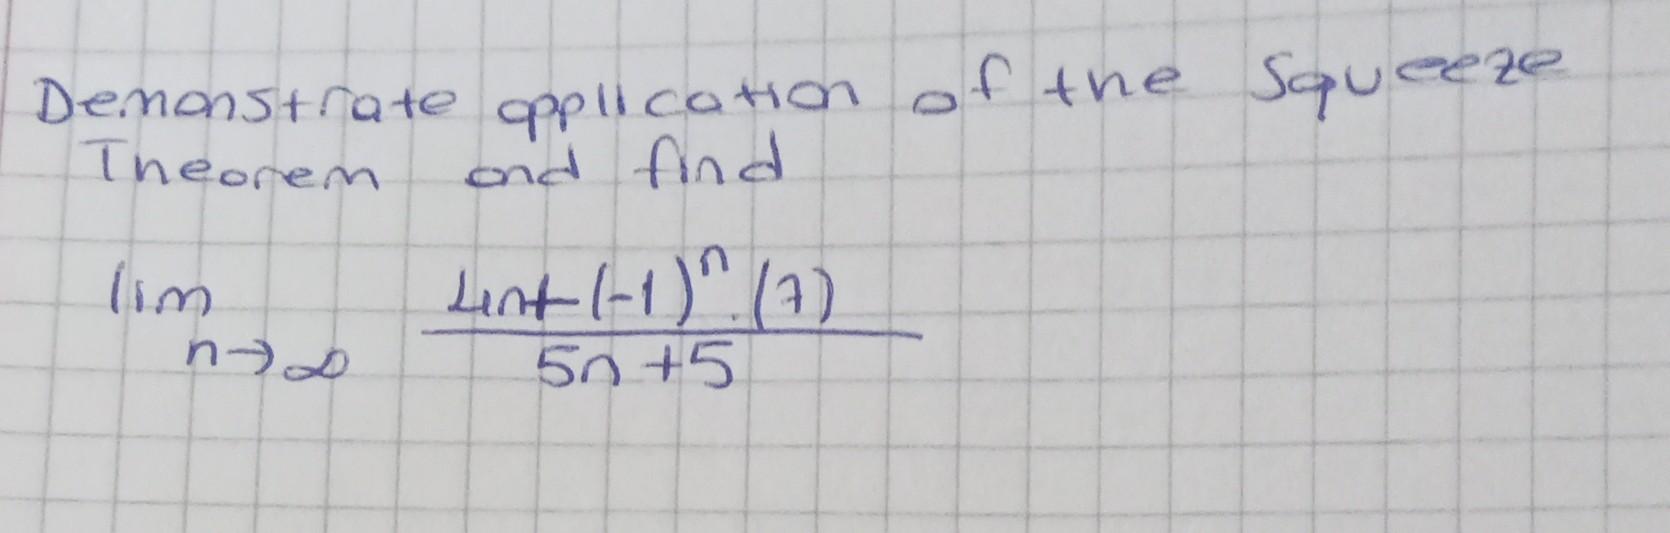 Demonstrate application of the Squeeze
Theorem and find
lim n→∞ (4n+(-1)^n.(7))/(5n+5)